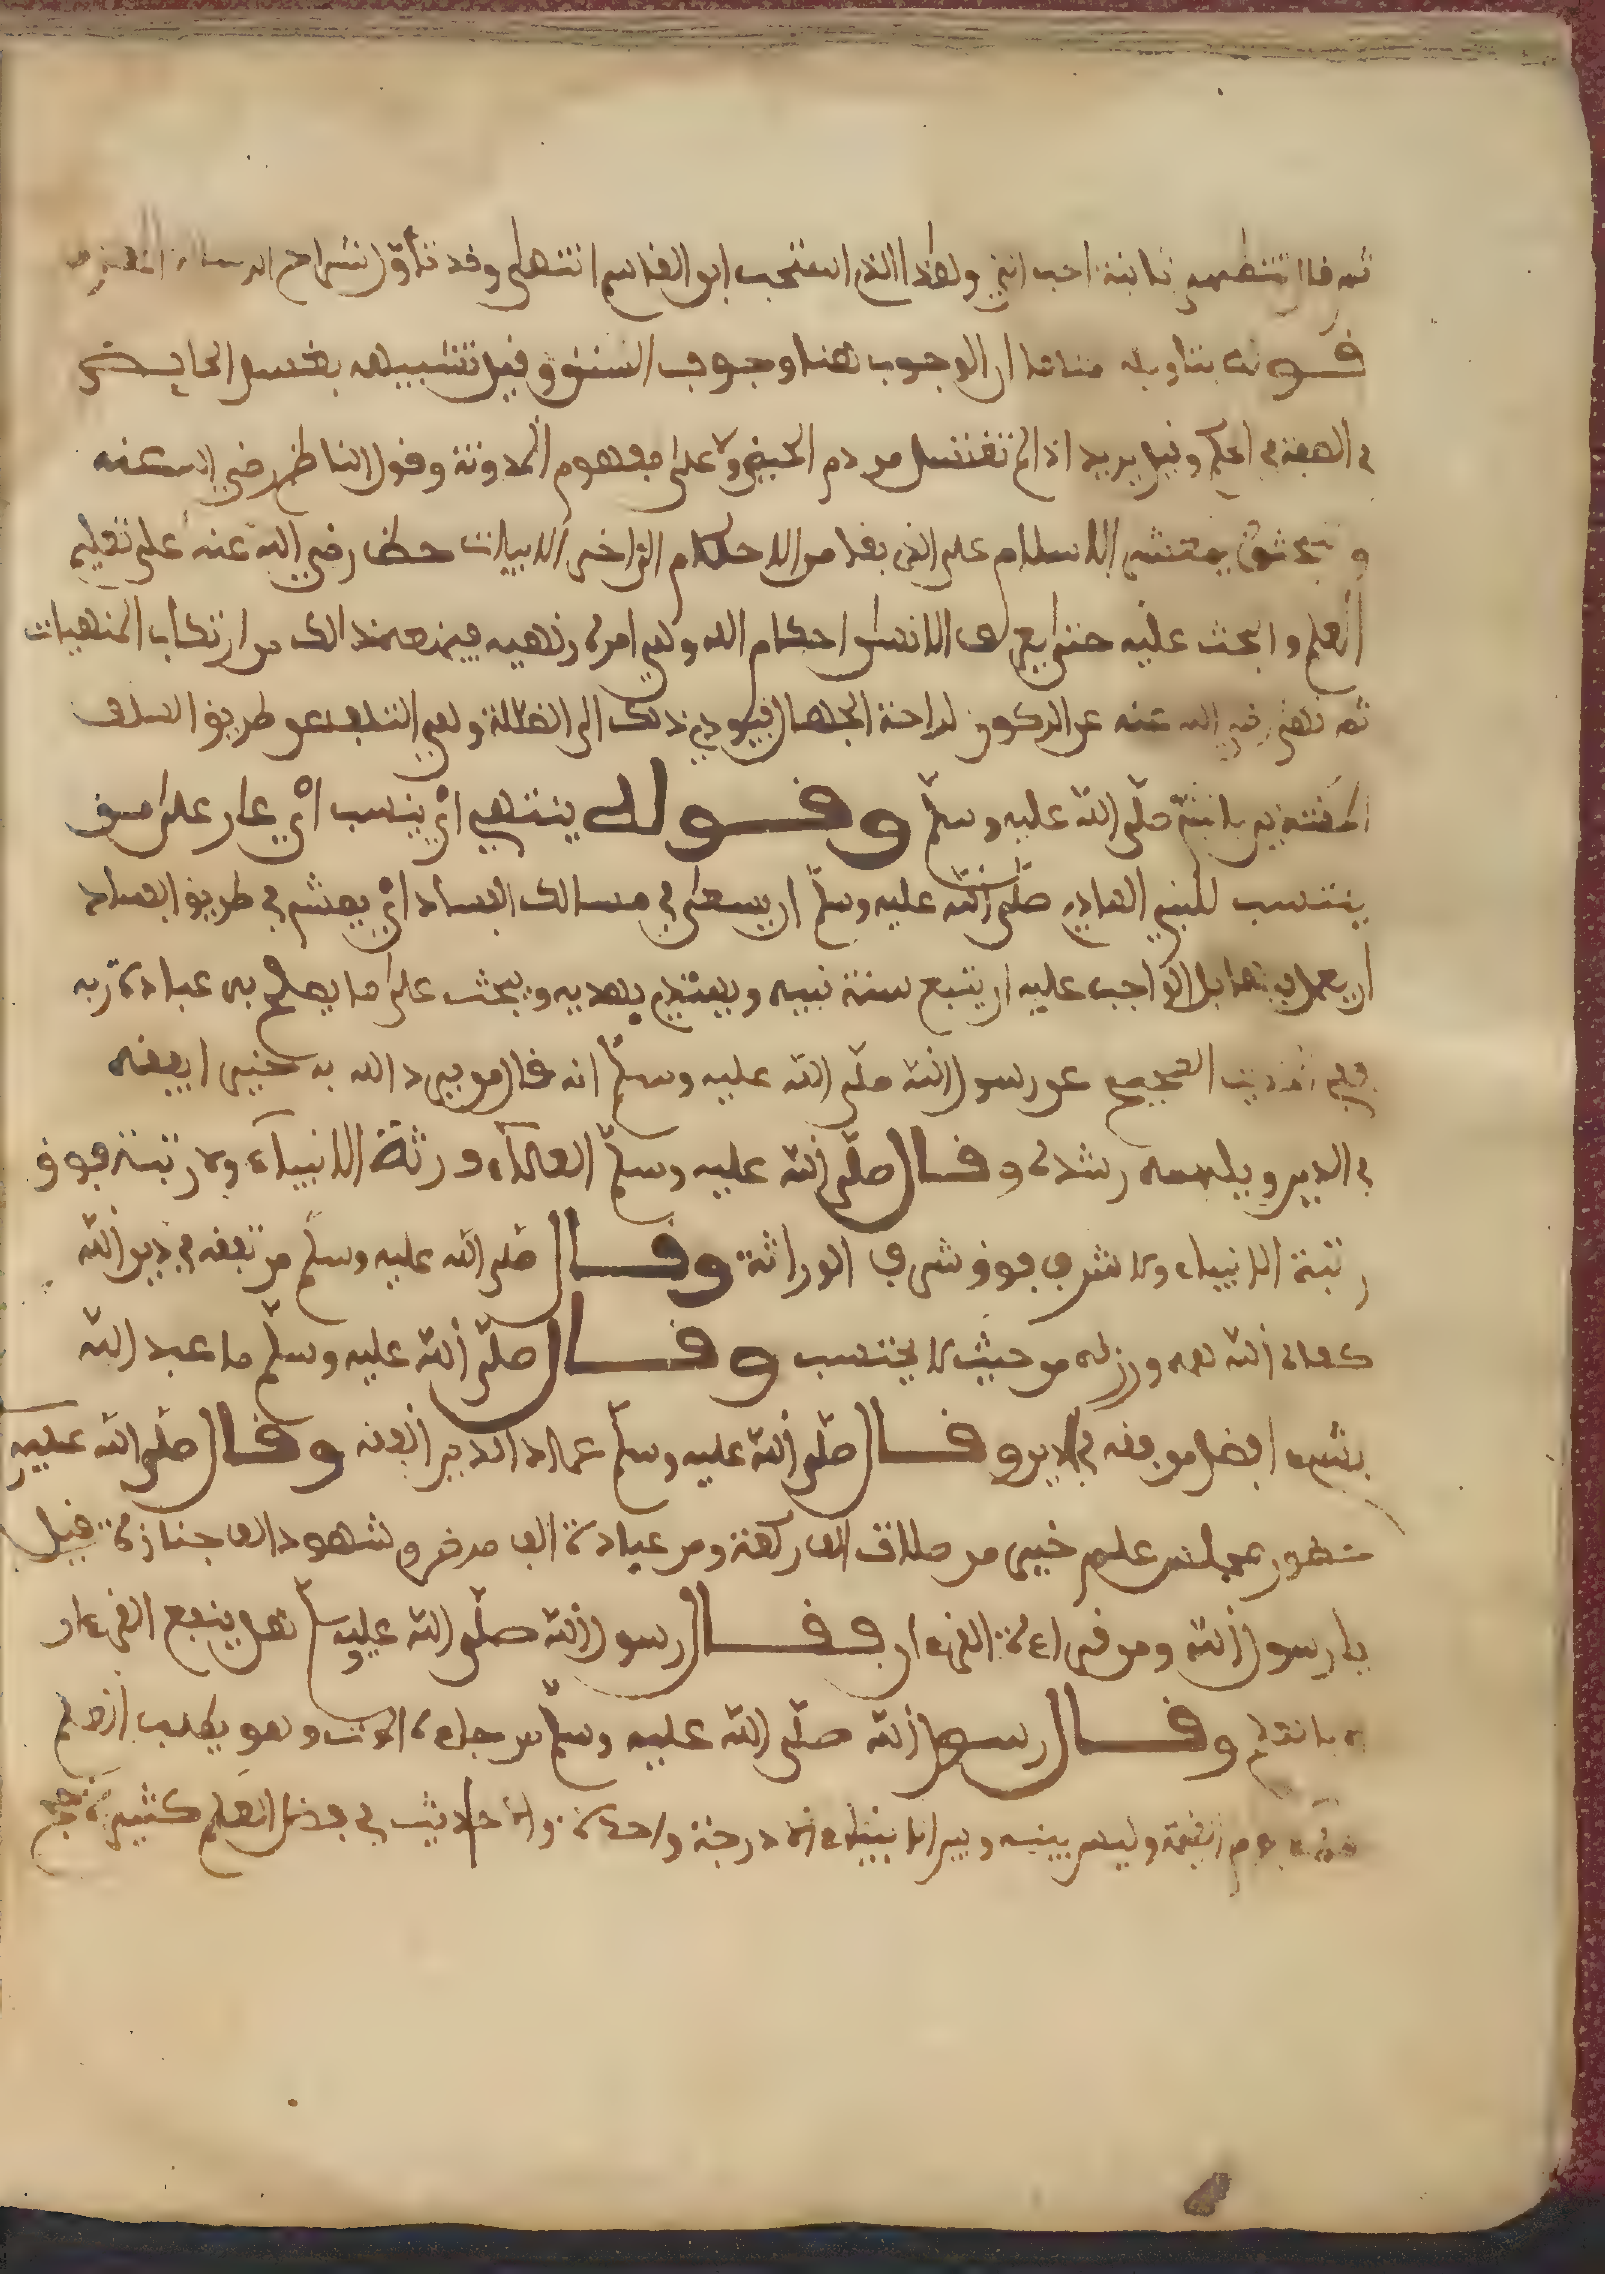 ثم قال تتطهر ثانية احب الي ولهذا الذي استحب ابو القاسم انتهى وقد تأول شراح الرسالة
قوله بتاويله منها ان الوجوب هنا وجوب السنن وقيل تشبيهه بغسل الحايض
في الصفة في الحكم وقيل يريد اذا لم تغتسل من دم الحيض ولا على مفهوم المدونة وقول الناظم رضي الله عنه
و بحثه الاسلام على الذي بعد من الاحكام الى اخر الابيات حظ رضي الله عنه على تعليم
العلم والبحث عليه حتى يعرف الانسان احكام الله وهي امره ونهيه فيمنعه ذالك من ارتكاب المنهيات
ثم نهى رضي الله عنه عن الركون لراحة الجهال فيودي ذلك الى الضلالة وهي التلف عن طريق السلف
المقتدين بالنبي صلى الله عليه وسلم وقوله ينتهي اي ينسب اي عار على من
ينتسب للنبي الهادي صلى الله عليه وسلم ان يسعى في مسالك الفساد اي يمشي في طريق الفساد
ان يعمل بها بل الواجب عليه ان يتبع سنة نبيه ويهتدي بهديه ويبحث على ما يصلح به عبادة ربه
ففي الحديث الصحيح عن رسول الله صلى الله عليه وسلم انه قال من يرد الله به خيرا يفقه
في الدين ويلهمه رشده وقال صلى الله عليه وسلم العلماء ورثة الانبياء ولا رتبة فوق
رتبة الانبياء ولا شرف فوق شرف الوراثة وقال صلى الله عليه وسلم من تفقه في دين الله
كفاه الله همه ورزقه من حيث لا يحتسب وقال صلى الله عليه وسلم ما عبد الله
بشيء افضل من فقه في الدين وقال صلى الله عليه وسلم عماد الدين الفقه وقال صلى الله عليه
حضور مجلس علم خير من صلاة الف ركعة ومن عيادة الف مريض وشهود الف جنازة قيل
يا رسول الله ومن قراءة القرءان فقال رسول الله صلى الله عليه وسلم هل ينفع القرءان
الا بالعلم وقال رسول الله صلى الله عليه وسلم من جاءه الموت وهو يطلب العلم
يوم القيمة وليس بينه وبين الانبياء الا درجة واحدة والاحاديث في فضل العلم كثيرة